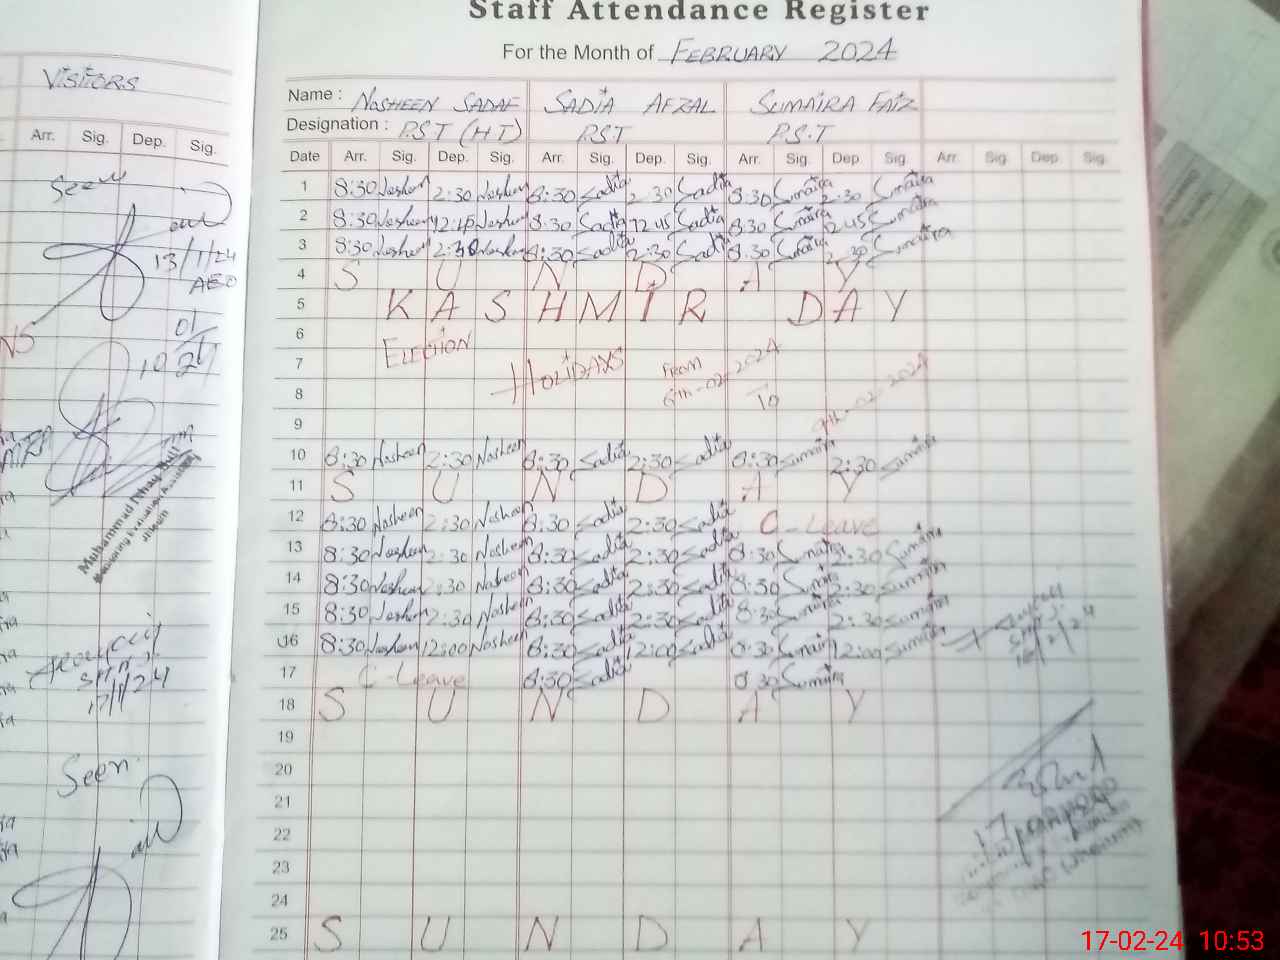 VISITORS
Arr. Sig. Dep. Sig.
Seen
13/1/24
AEO
Seen
Staff Attendance Register
For the Month of FEBRUARY 2024
Name : NOSHEEN SADAF SADIA AFZAL SUMAIRA FAIZ
Designation : P.ST (HT) P.S.T P.S.T
Date Arr. Sig. Dep. Sig. Arr. Sig. Dep. Sig. Arr. Sig. Dep Sig. Arr. Sig. Dep Sig.
1 8:30 Nosheen 2:30 Nosheen 8:30 Sadia 2:30 Sadia 8:30 Sumaira 2:30 Sumaira
2 8:30 Nosheen 12:45 Nosheen 8:30 Sadia 12:45 Sadia 8:30 Sumaira 12:45 Sumaira
3 8:30 Nosheen 2:30 Nosheen 8:30 Sadia 2:30 Sadia 8:30 Sumaira 2:30 Sumaira
4 S U N D A Y
5 KASHMIR DAY
6 ELECTION
7 HOLIDAYS From 6th-02-2024
8 To
9 9th-02-2024
10 8:30 Nosheen 2:30 Nosheen 8:30 Sadia 2:30 Sadia 8:30 Sumaira 2:30 Sumaira
11 S U N D A Y
12 8:30 Nosheen 2:30 Nosheen 8:30 Sadia 2:30 Sadia C-Leave
13 8:30 Nosheen 2:30 Nosheen 8:30 Sadia 2:30 Sadia 8:30 Sumaira 2:30 Sumaira
14 8:30 Nosheen 2:30 Nosheen 8:30 Sadia 2:30 Sadia 8:30 Sumaira 2:30 Sumaira
15 8:30 Nosheen 2:30 Nosheen 8:30 Sadia 2:30 Sadia 8:30 Sumaira 2:30 Sumaira
16 8:30 Nosheen 12:00 Nosheen 8:30 Sadia 12:00 Sadia 8:30 Sumaira 12:00 Sumaira
16/2/24
17 C-Leave 8:30 Sadia 8:30 Sumaira
18 S U N D A Y
19
20
21
22
23
24
25 S U N D A Y
17-02-24 10:53